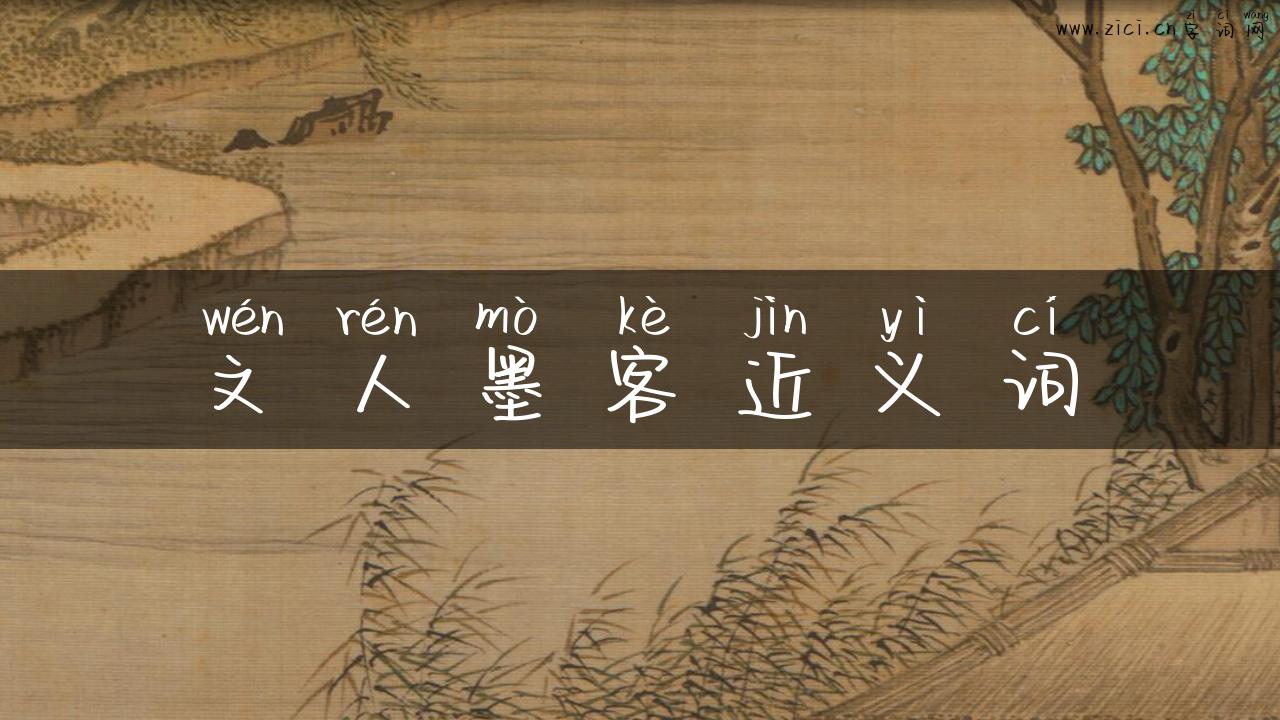 zì cí wǎng
www.zici.cn 字词网
wén rén mò kè jìn yì cí
文人墨客近义词